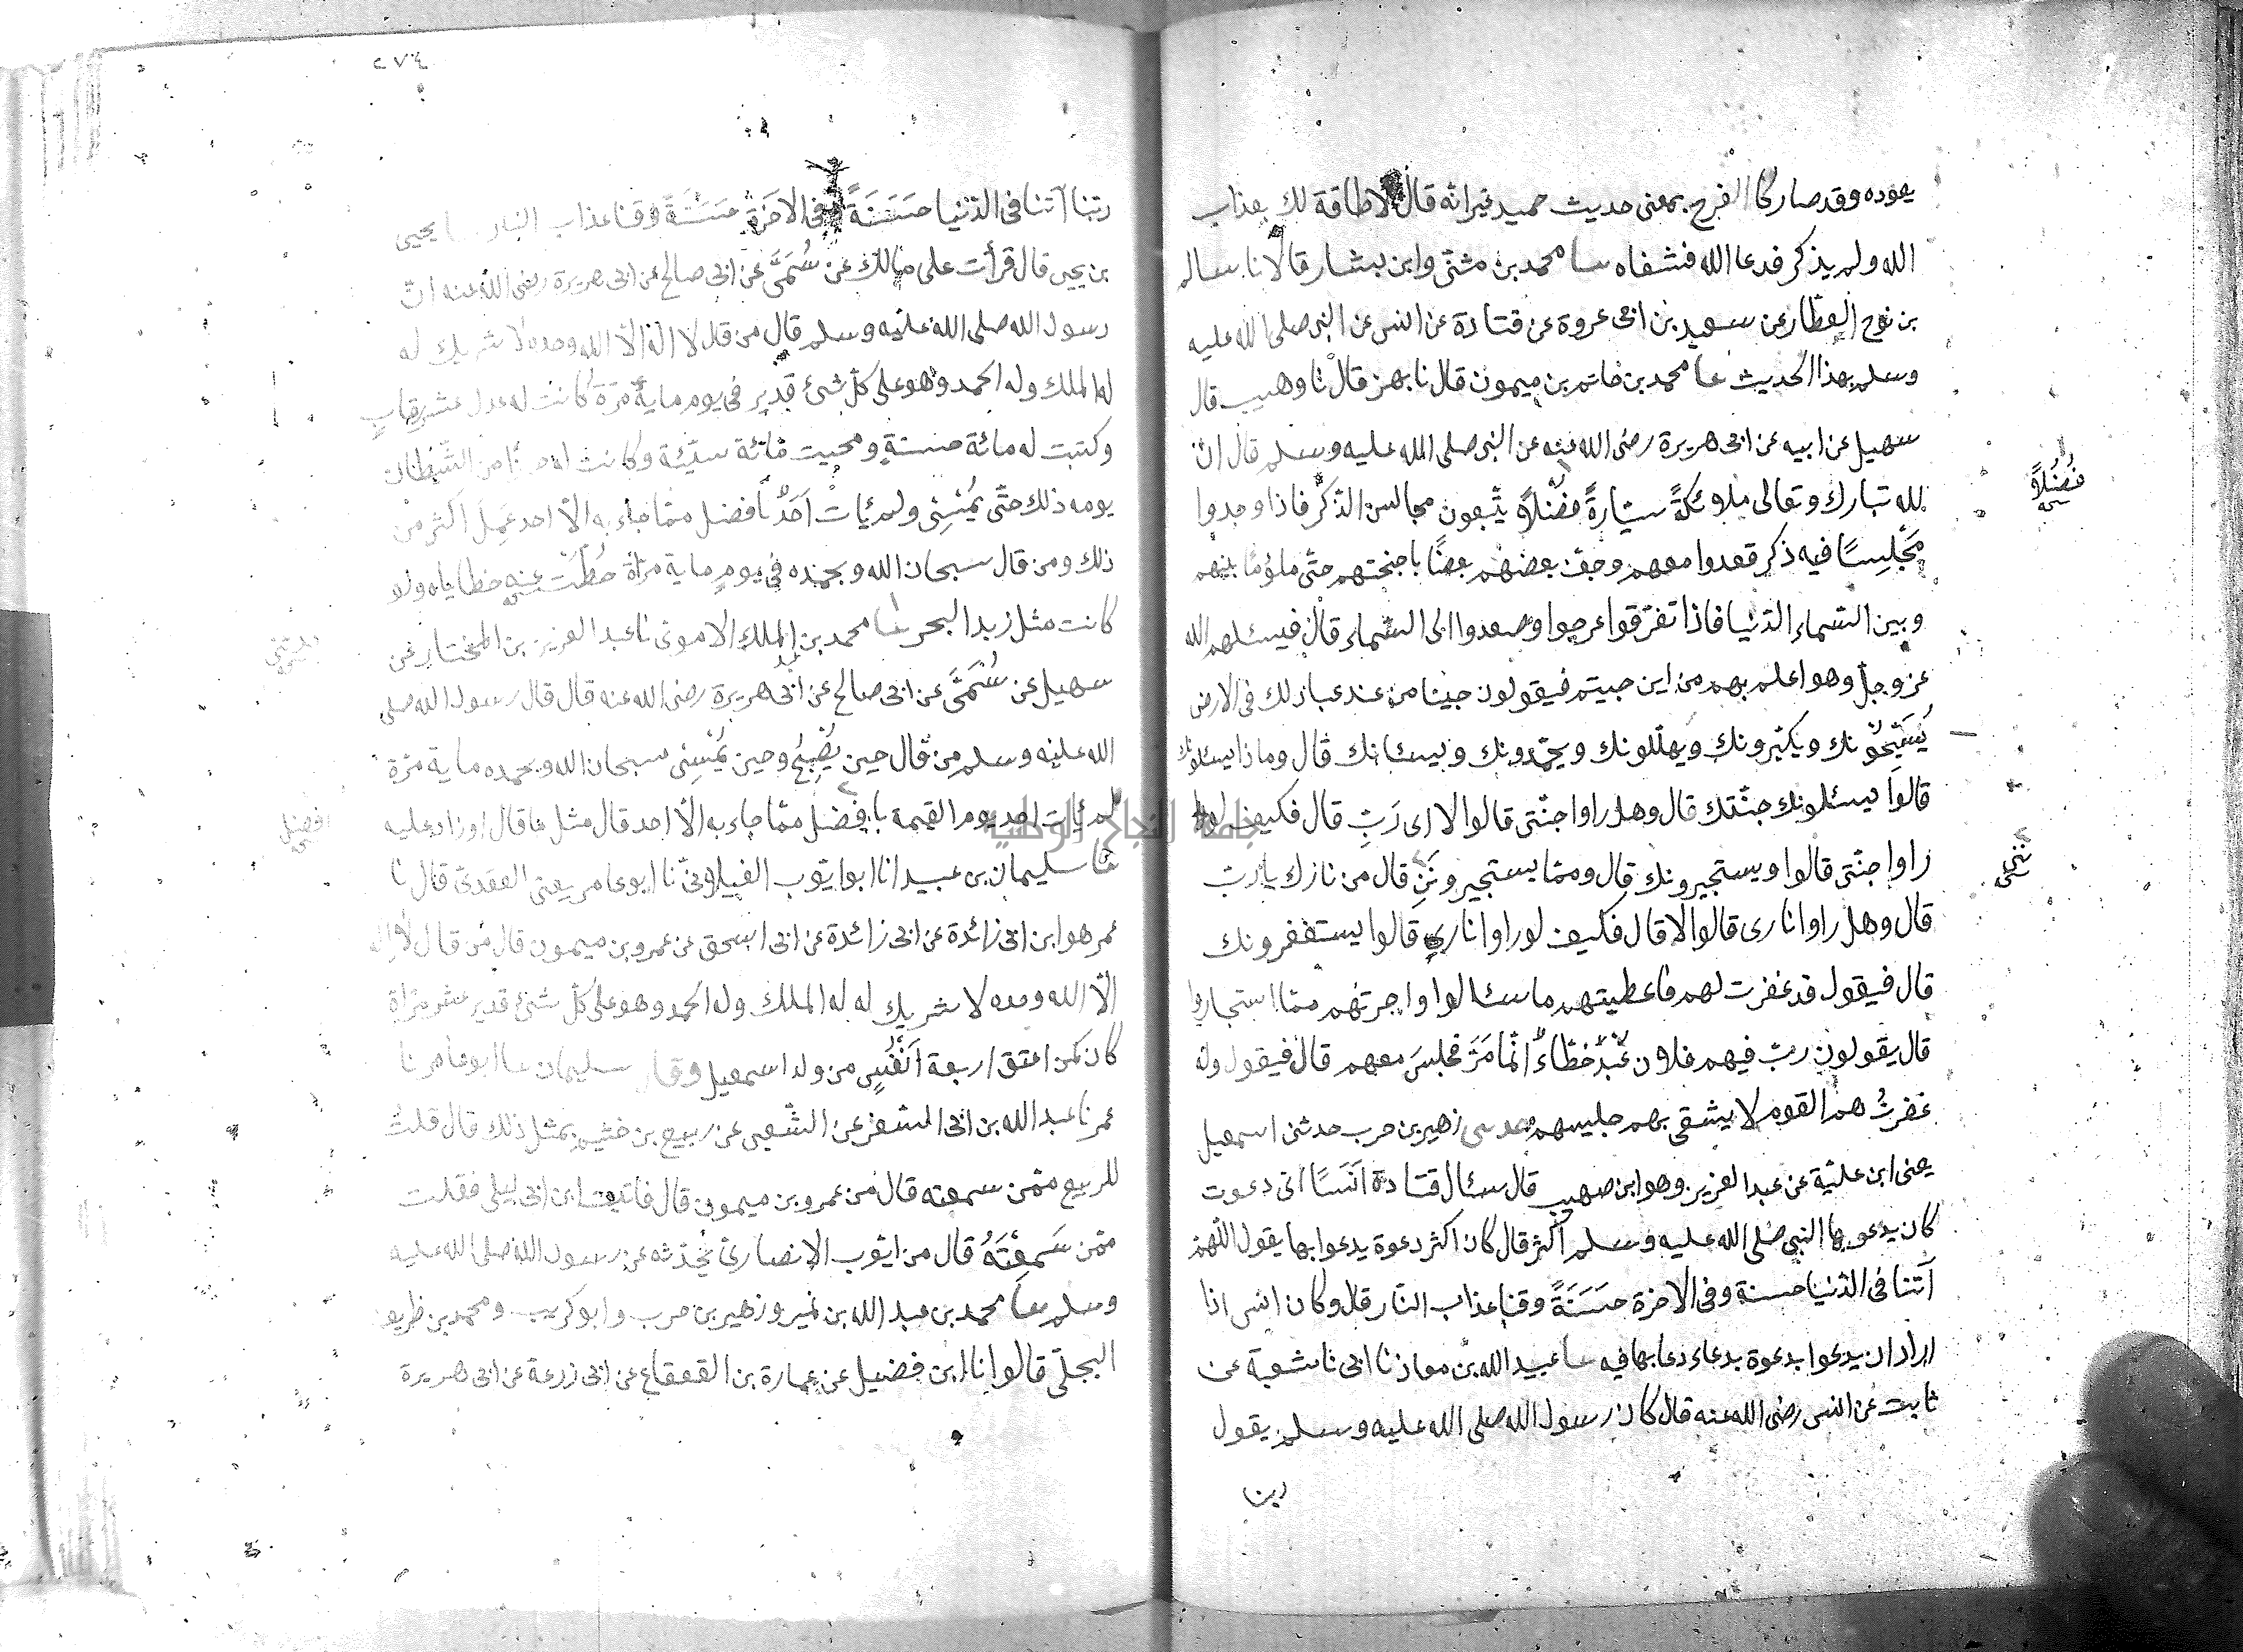 يعوده وقد صار كالفرح بمعنى حديث حميد غير انه قال لا طاقة لك بعذاب
الله ولم يذكر فدعا الله فشفاه سا محمد بن مثنى وابن بشار قالا نا سالم
بن نوح العطار عن سعيد بن ابى عروة عن قتادة عن انس عن النبي صلى الله عليه
وسلم بهذا الحديث سا محمد بن حاتم بن ميمون قال نا بهز قال نا وهيب قال
سهيل عن ابيه عن ابى هريرة رضى الله عنه عن النبى صلى الله عليه وسلم قال ان
لله تبارك وتعالى ملائكةً سيّارةً فضلاً يتّبعون مجالس الذكر فاذا وجدوا
فُضُلاً
مَجْلِسًا فيه ذكر قعدوا معهم وحف بعضهم بعضًا باجنحتهم حتّى ملؤما بينهم
وبين السماء الدنيا فاذا تفرّقوا عرجوا وصعدوا الى السّماء قال فيسئلهم الله
عز وجل وهو اعلم بهم من اين جيتم فيقولون جينا من عند عباد لك فى الارض
يُسَبِّحُونك ويكبّرونك ويُهلّلونك ويحمّدونك ويسئلونك قال وماذا يسئلونك
قالوا يسئلونك جنّتك قال وهل راوا جنّتى قالوا لا اى رَبِّ قال فكيف لو
راوا جنّتى قالوا ويستجيرونك قال وممّا يستجيرونَنِ قال من نارك يا ربّ
ننى
قال وهل راوا نارى قالوا لا قال فكيف لو راوا نارى قالوا يستغفرونك
قال فيقول قد غفرت لهم فاعطيتهم ما سئالوا واجرتهم ممّا استجاروا
قال يقولون ربّ فيهم فلان عَبْدٌ خطّاءٌ انّما مَرَّ فجلسَ معهم قال فيقول وله
غفرتُ هم القوم لا يشقى بهم جليسهم حدثنى زهير بن حرب حدثنى اسمعيل
يعنى ابن عليّة عن عبد العزيز وهو ابن صهيب قال سئال قتادة اَنَسًا اى دعوت
كان يدعو بها النبي صلى الله عليه وسلم اكثر قال كان اكثر دعوة يدعوا بها يقول اللّهمّ
آتنا فى الدّنيا حسنة وفى الاخرة حسَنَةً وقنا عذاب النّار قال وكان انس اذا
اراد ان يدعوا بدعوة بدعاء دعا بها فيه سا عبيد الله بن معاذ نا ابى نا شعبة عن
ثابت عن انس رضى الله عنه قال كان رسول الله صلى الله عليه وسلم يقول
ربنا
٢٧٤
ربّنا آتنا فى الدّنيا حسَنَةً وفى الاخرة حسَنَةً وقنا عذاب النار سا يحيى
بن يحيى قال قرأت على مالك عن سُمَىَّ عن ابى صالح عن ابى هريرة رضى الله عنه انّ
رسول الله صلى الله عليه وسلم قال من قال لا اله الّا الله وحده لا شريك له
له الملك وله الحمد وهو على كلّ شئ قدير فى يوم ماية مرّة كانت له عدل عشر رقابٍ
وكتبت له مائة حسنةٍ ومحيت مائة سيّئة وكانت له حرزًا من الشّيطان
يومه ذلك حتّى يُمْسِى ولم يات اَحَدٌ بافضل ممّا جاء به الّا احد عَمِلَ اكثر من
ذلك ومن قال سبحان الله وبحمده فى يوم ماية مرّة حُطّت عنه خطاياه ولو
كانت مثل زبد البحر سا محمد بن عبد الملك الاموى نا عبد العزيز بن المختار عن
سهيل عن سُمَىَّ عن ابى صالح عن ابى هريرة رضى الله عنه قال قال رسول الله صلى
الله عليه وسلم من قال حين يُصْبِحُ وحين يُمْسِى سبحان الله وبحمده ماية مرّة
لم يات احد يوم القيمة بافضل ممّا جاء به الّا احد قال مثل ما قال او زاد عليه
افضل
جامعة النجاح الوطنية
سا سليمان بن عبيد الله ابو ايّوب الغيلانىّ نا ابو عامر يعنى العقدىّ قال نا
عمر هو ابن ابى زائدة عن ابى زائدة عن ابى اسحق عن عمرو بن ميمون قال من قال لا اله
الّا الله وحده لا شريك له له الملك وله الحمد وهو على كلّ شئ قدير عشر مرّاة
كان كمن اعتق اربعة اَنْفُسٍ من ولد اسمعيل وقال سليمان سا ابو عامر نا
عمر نا عبد الله بن ابى السّفر عن الشّعبى عن ربيع بن خثيم بمثل ذلك قال قلتُ
للربيع ممّن سمعته قال من عمرو بن ميمون قال فاتيت ابن ابى ليلى فقلت
ممّن سَمِعْتَهُ قال من ايّوب الانصارىّ يُحدّثه عن رسول الله صلى الله عليه
وسلم سا محمد بن عبد الله بن نمير وزهير بن حرب وابو كريب ومحمد بن طريف
البجلّى قالوا نا ابن فضيل عن عمارة بن القعقاع عن ابى زرعة عن ابى هريرة